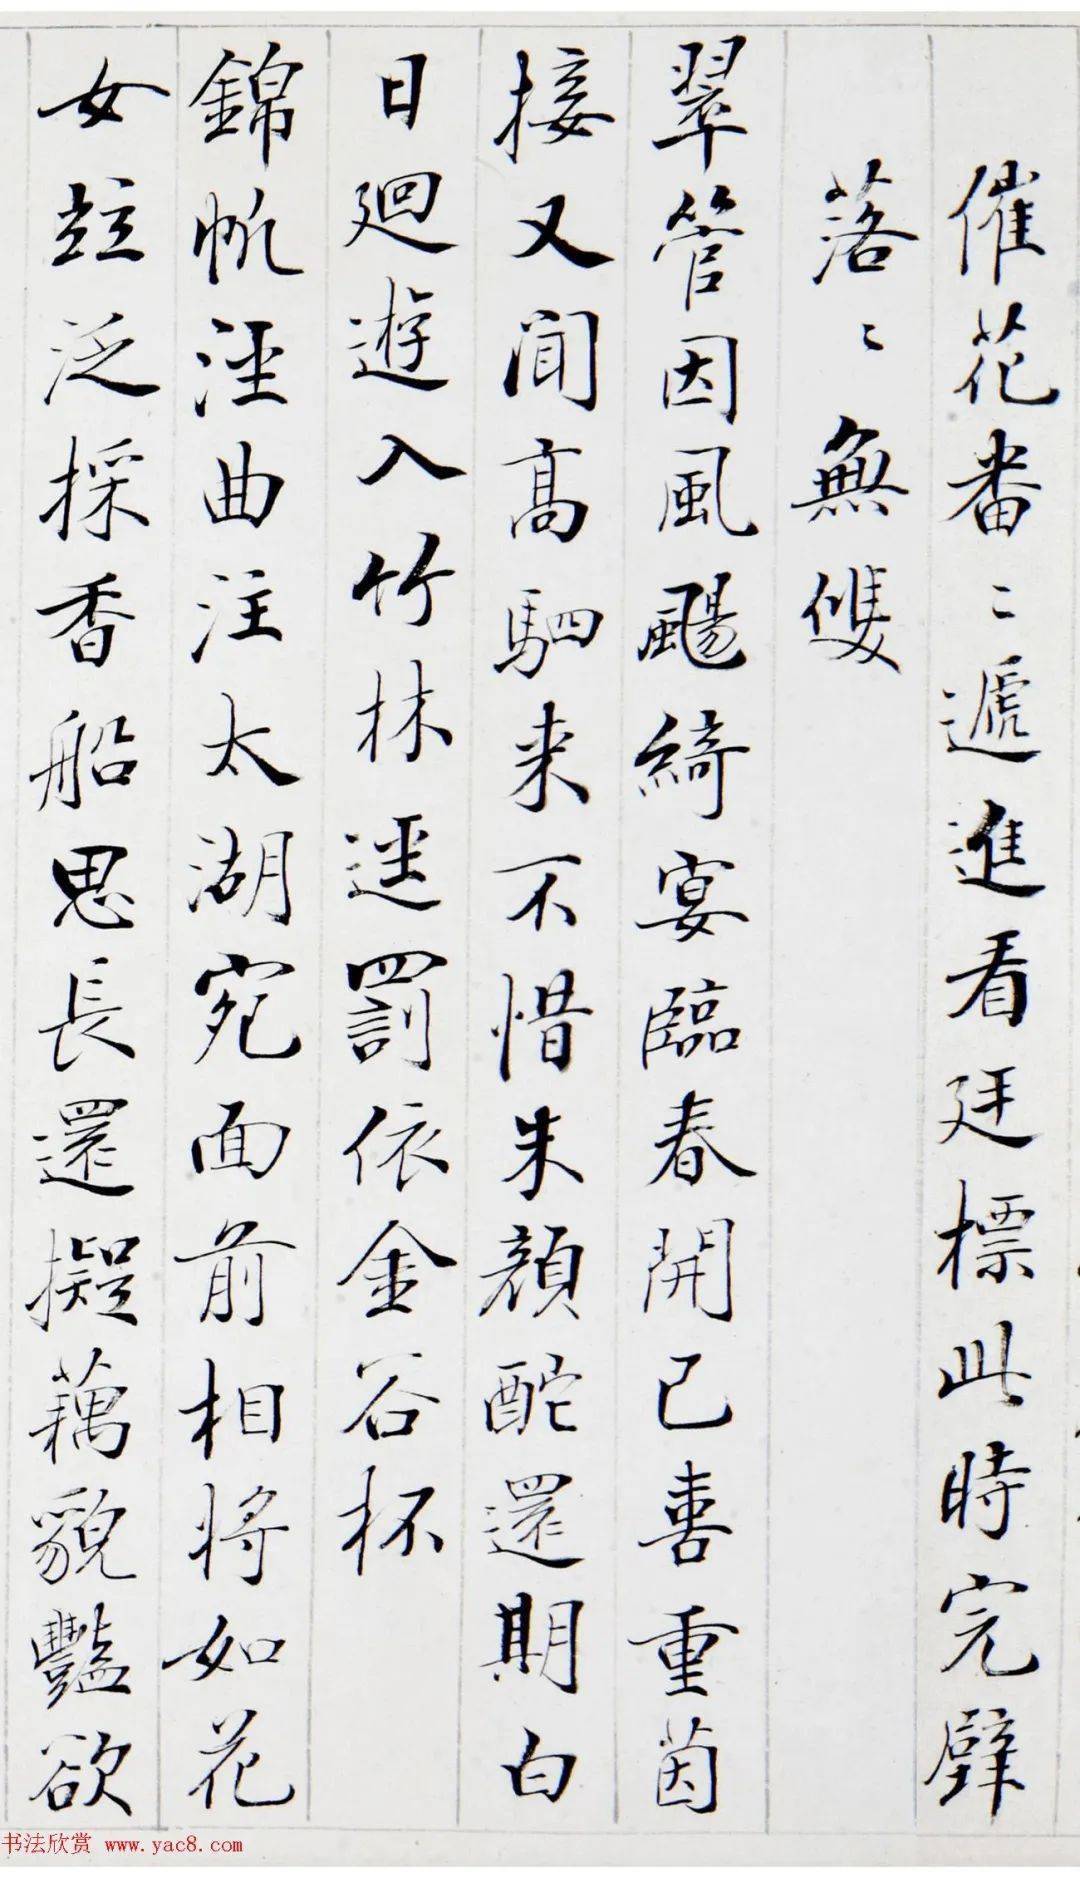 催花番〻遞進看廷標此時完璧
落〻無雙
翠管因風颺綺宴臨春開已喜重茵
接又聞高駟来不惜朱顏酡還期白
日迴遊入竹林逕罰依金谷杯
錦帆涇曲注太湖宛面前相將如花
女竝泛採香船思長還擬藕貌豔欲
书法欣赏 www.yac8.com